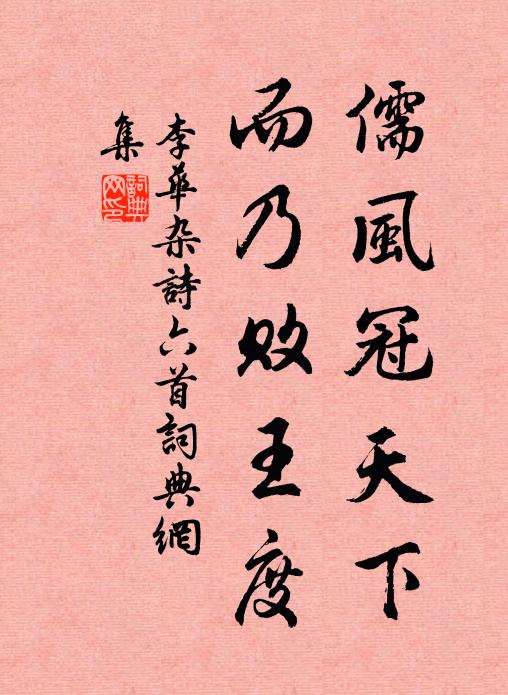 儒風冠天下
而乃敗王度
李華杂詩六首詞典網
集
詞典
网印